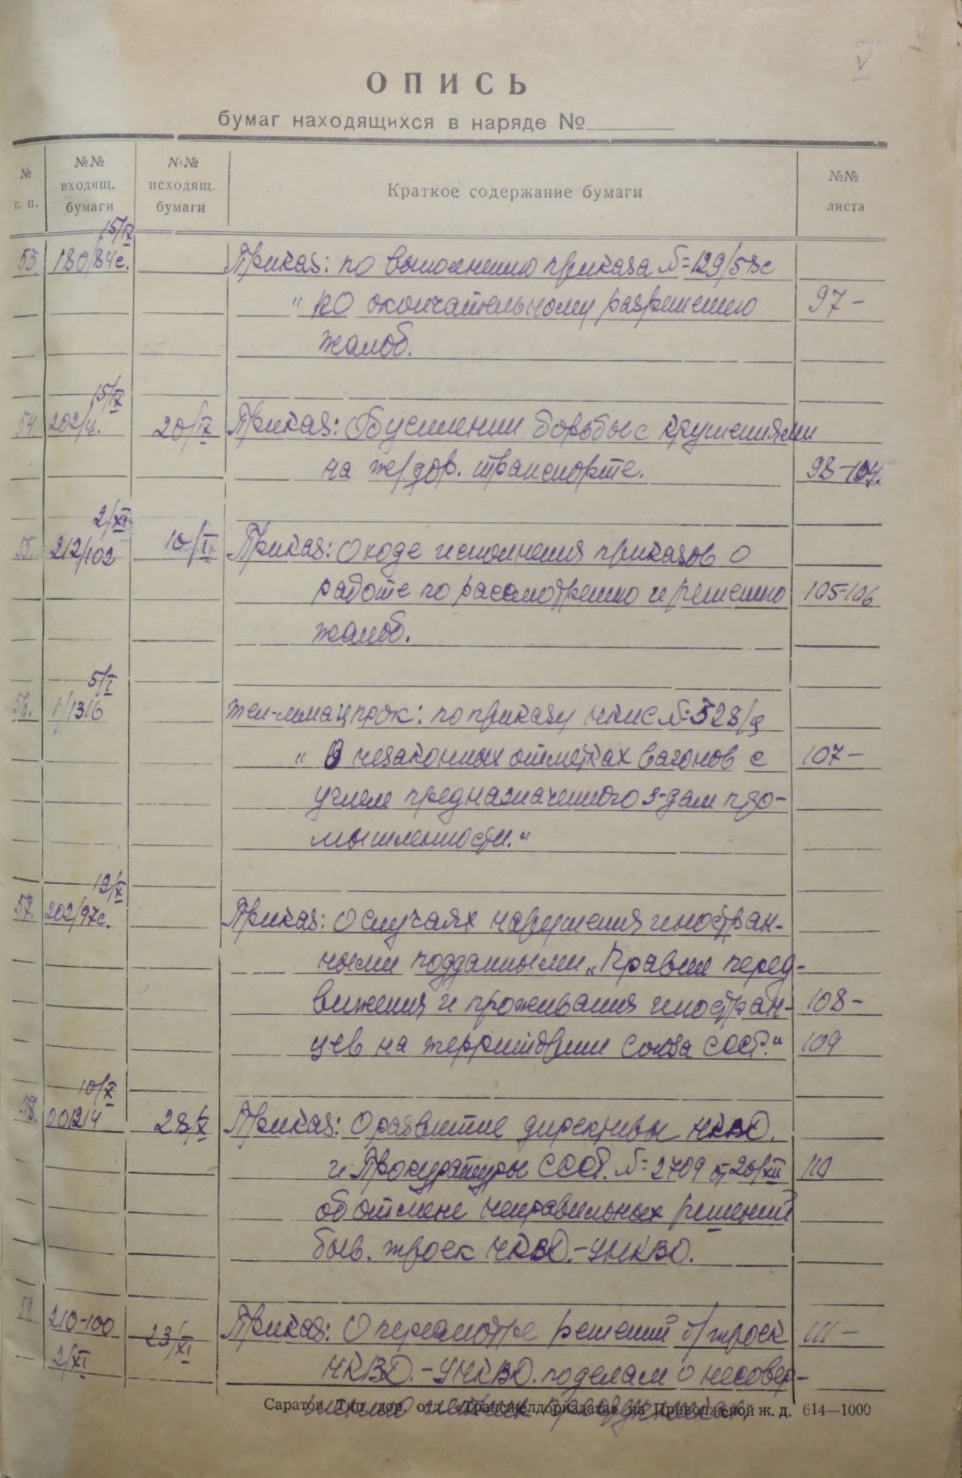 V
ОПИСЬ
бумаг находящихся в наряде №
№ п. п. №№ входящ. бумаги №№ исходящ. бумаги Краткое содержание бумаги №№ листа
15/IX
53 180/84с. Приказ: по выполнению приказа №=129/53с
"по окончательному разрешению 97-
жалоб.
15/IX
54 202/ц. 20/IX Приказ: Об усилении борьбы с крушениями
на ж/дор. транспорте. 98-104.
2/XI
55. 212/102 10/IX Приказ: О ходе исполнения приказов о
работе по рассмотрению и решению 105-106
жалоб.
5/I
56. 1/1316 по приказу НКПС №=528/ц
"О незаконных отметках вагонов с 107-
углем предназначенного з-дам про-
мышленности."
19/X
57. 202/97с. Приказ: О случаях нарушения иностран-
ными подданными „Правил перед-
вижения и проживания иностран- 108-
цев на территории Союза ССР." 109
10/X
58. 001214 28/X Приказ: О развитие директивы НКВД.
и Прокуратуры СССР. №=2709 от 26/XII 110
об отмене неправильных решений
быв. троек НКВД.-УНКВД.
59. 210-100 23/XI Приказ: О пересмотре решений б/троек 111-
2/XI НКВД.-УНКВД. по делам о несовер-
Саратов. Тип. дор. отд. «Трансжелдориздата» на Приволжской ж. д. 614—1000